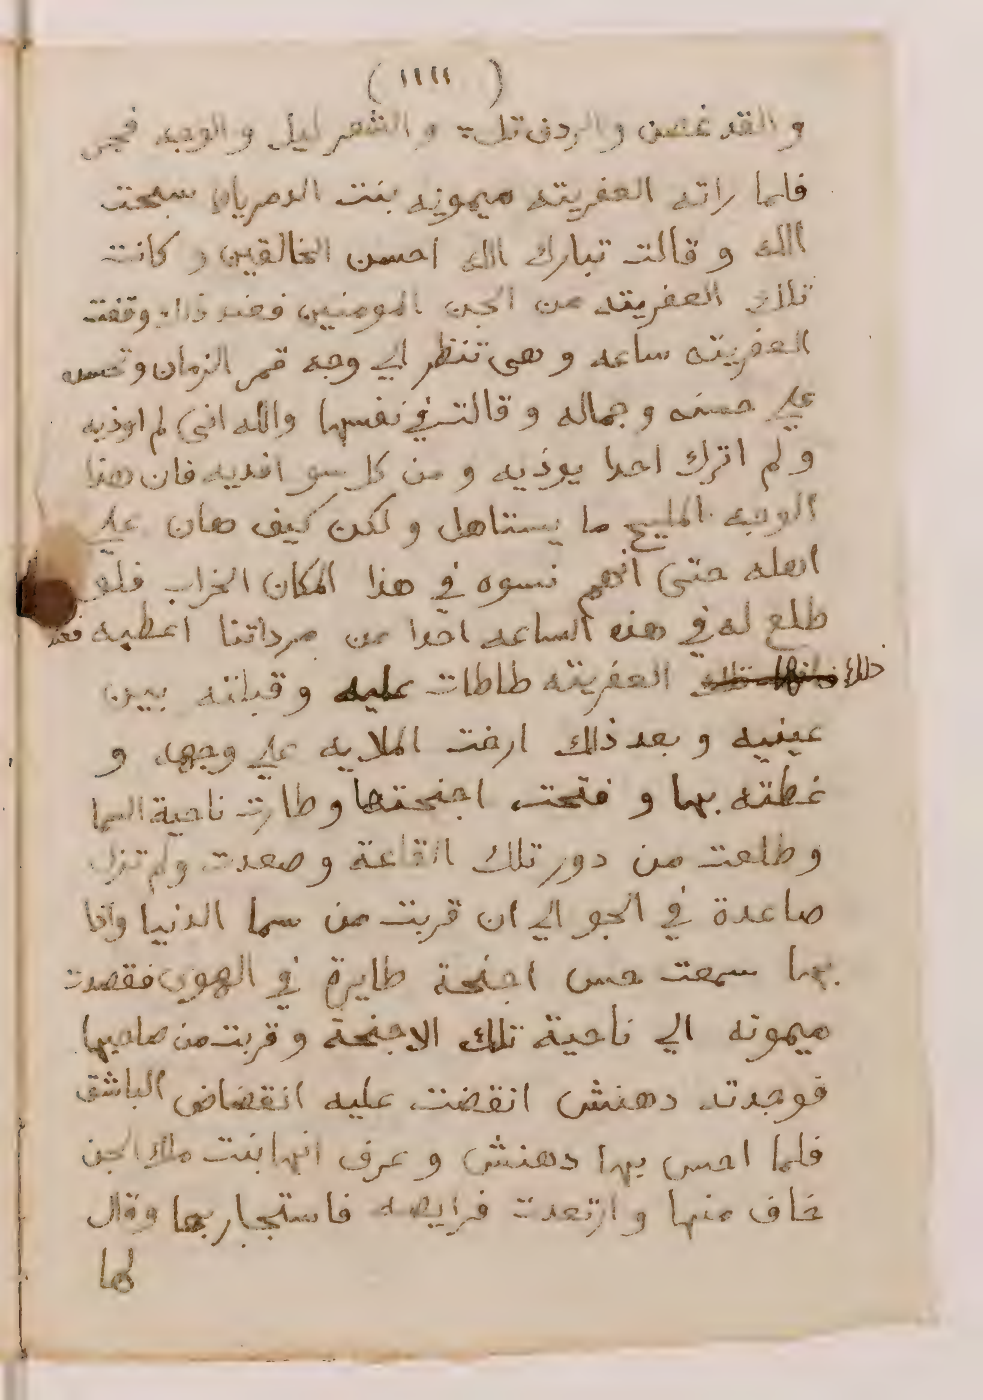 ( ١١١١ )
و القد غصن والردف تل و الشعر ليل و الوجه فجر
فلما راته العفريته ميمونه بنت الدمرياط سبحت
الله و قالت تبارك الله احسن الخالقين و كانت
تلك العفريته من الجن المومنين فعند ذلك وقفت
العفريته ساعه و هى تنظر الي وجه قمر الزمان و
علي حسنه و جماله و قالت في نفسها والله انى لم اوذيه
و لم اترك احدا يوذيه و من كل سو افديه فان هذا
الوجه المليح ما يستاهل و لكن كيف هان علي
اهله حتى انهم نسوه في هذا المكان الخراب فلو
طلع له في هذه الساعه احدا من مرداتنا اعطبه فعند
ذلك العفريته طاطات عليه و قبلته بين
عينيه و بعد ذلك ارخت الملايه علي وجهه و
غطته بها و فتحت اجنحتها و طارت ناحية السما
و طلعت من دور تلك القاعة و صعدت ولم تزل
صاعدة في الجو الي ان قربت من سما الدنيا واذا
بها سمعت حس اجنحة طايرة في الهوى فقصدت
ميمونه الي ناحية تلك الاجنحة و قربت من صاحبها
فوجدته دهنش انقضت عليه انقضاض الباشق
فلما احس بها دهنش و عرف انها بنت ملك الجن
خاف منها و ارتعدت فرايصه فاستجار بها وقال
لها